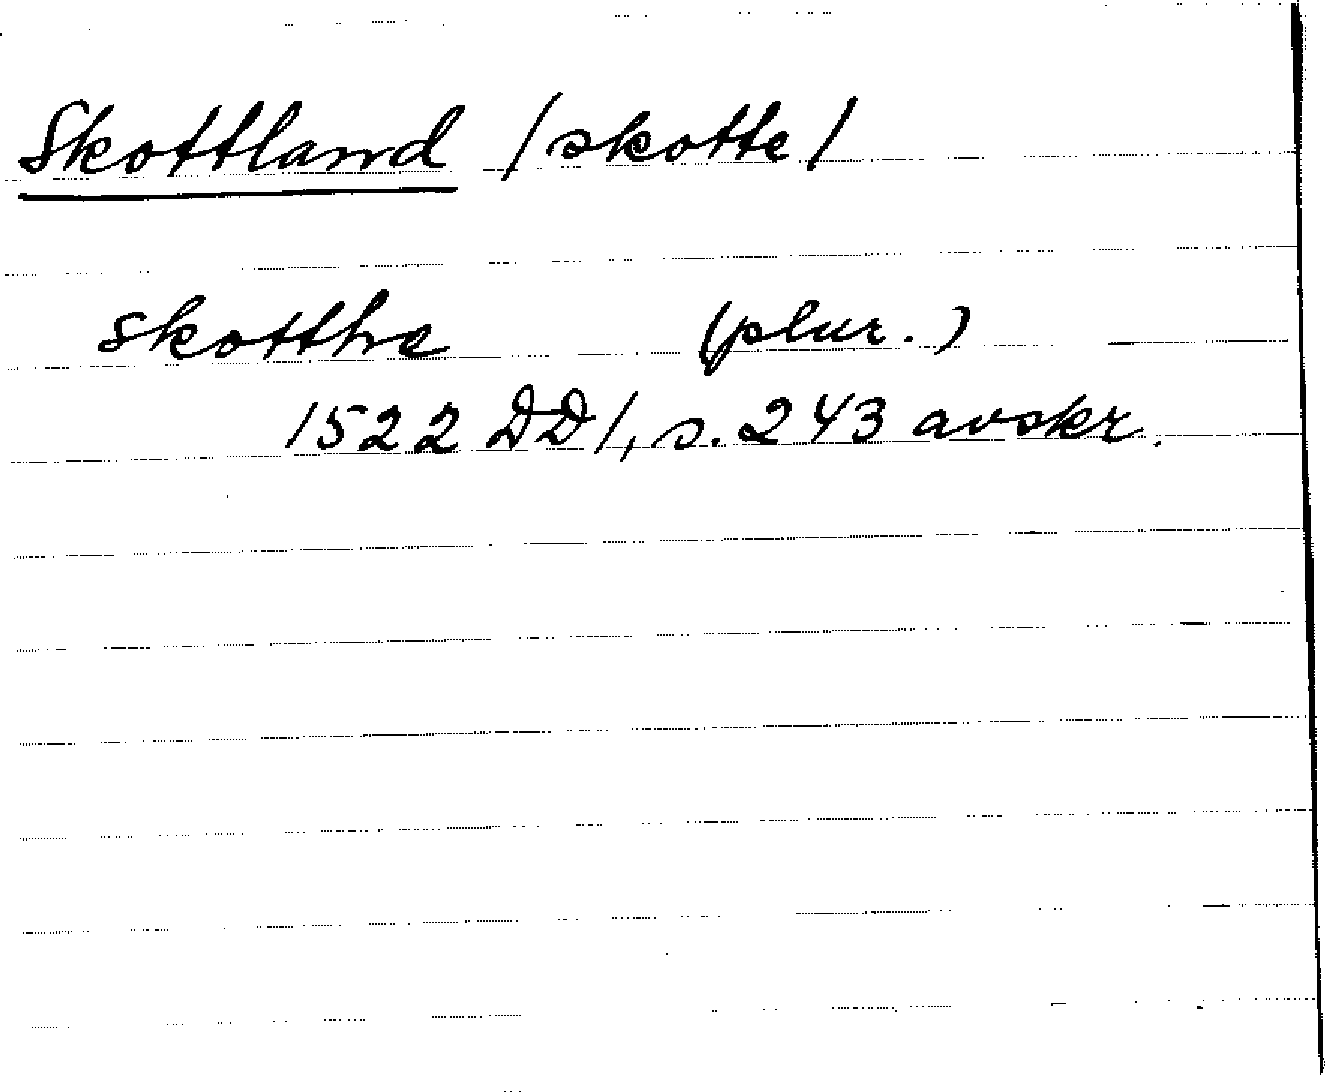 Skottland /skotte/
skotthe (plur.)
1522 DD1, s. 243 avskr.